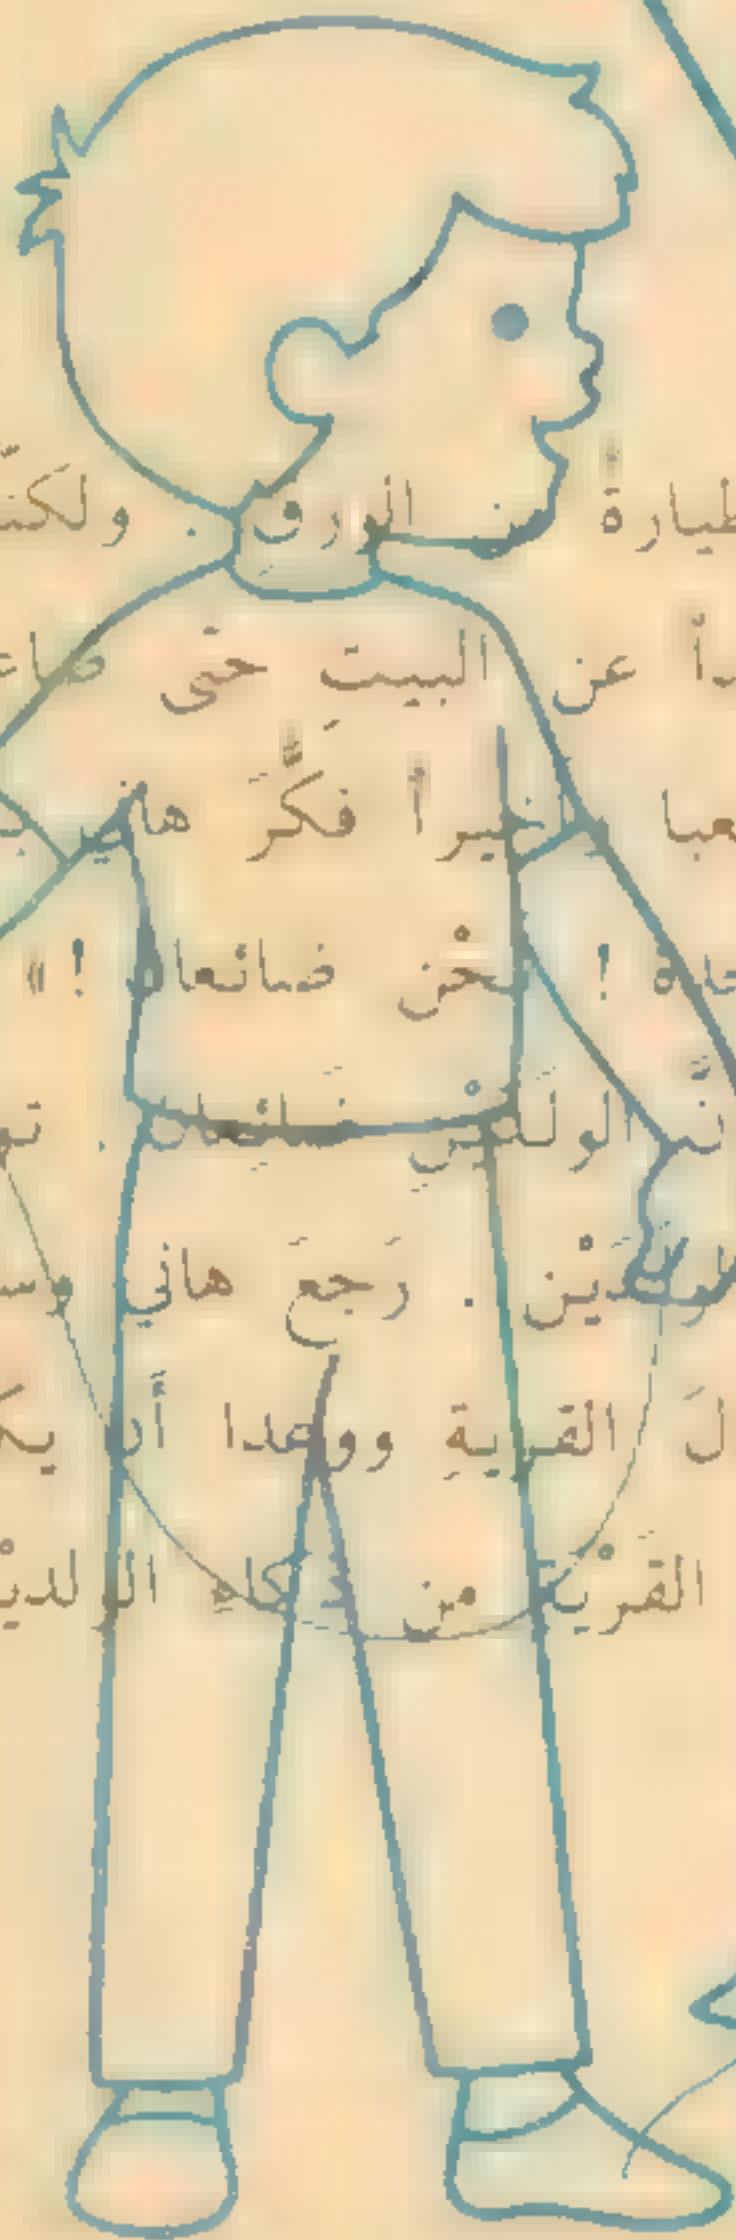 طيارةً من الورق . ولكنّ
عن البيتِ حتّى ضاع
فكَّرَ هاني
! نحْن ضائعان ! »
الولَدَيْن ضائعان . تو
الولدَيْن . رَجعَ هاني وسـ
لَ القريةِ ووعدا أَن يكـ
القرْية من ذكاءِ الولديْ